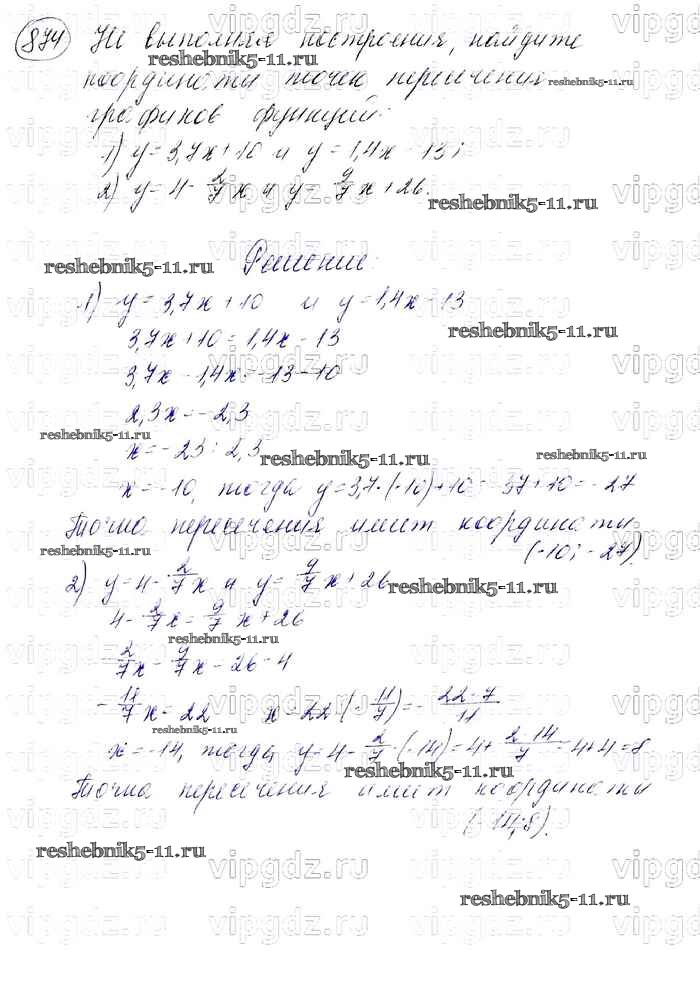 874 Не выполняя построения, найдите
координаты точек пересечения
графиков функций:
1) y=3,7x+10 и y=1,4x-13;
2) y=4-2/7x и y=9/7x+26.
Решение
1) y=3,7x+10 и y=1,4x-13
3,7x+10=1,4x-13
3,7x-1,4x=-13-10
2,3x=-2,3
x=-23:2,3
x=-10, тогда y=3,7·(-10)+10=-37+10=-27
Точка пересечения имеет координаты
(-10;-27).
2) y=4-2/7x и y=9/7x+26
4-2/7x=9/7x+26
-2/7x-9/7x=26-4
-11/7x=22 x=22:(-11/7)=-22·7/11
x=-14, тогда y=4-2/7·(-14)=4+2·14/7=4+4=8
Точка пересечения имеет координаты
(-14;8).
reshebnik5-11.ru
vipgdz.ru